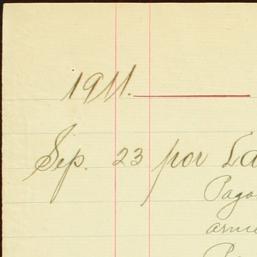 1911.
Sep. 23 por La
Pago